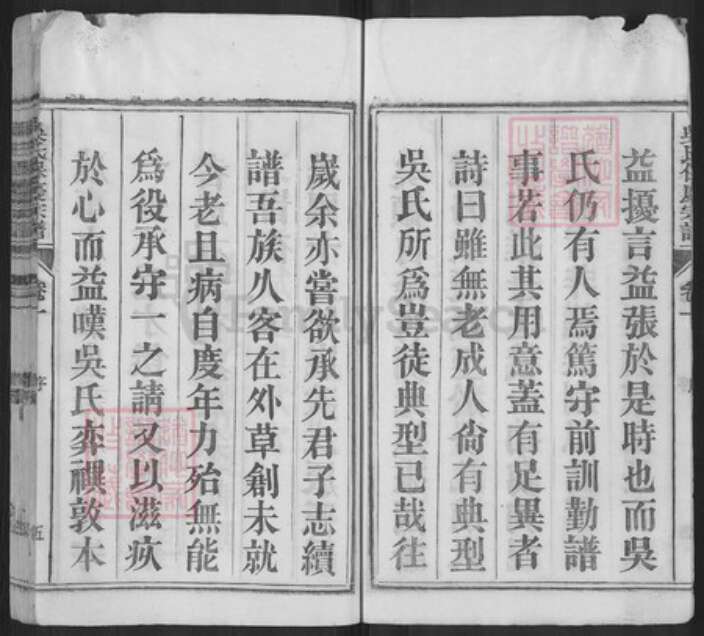 益擾言益張於是時也而吳
氏仍有人焉篤守前訓勤譜
事若此其用意蓋有足異者
詩曰雖無老成人尙有典型
吳氏所爲豈徒典型已哉往
嵗余亦嘗欲承先君子志續
譜吾族久客在外草創未就
今老且病自度年力殆無能
爲役承守一之請又以滋疚
於心而益嘆吳氏弈禩敦本
卷一
序
五